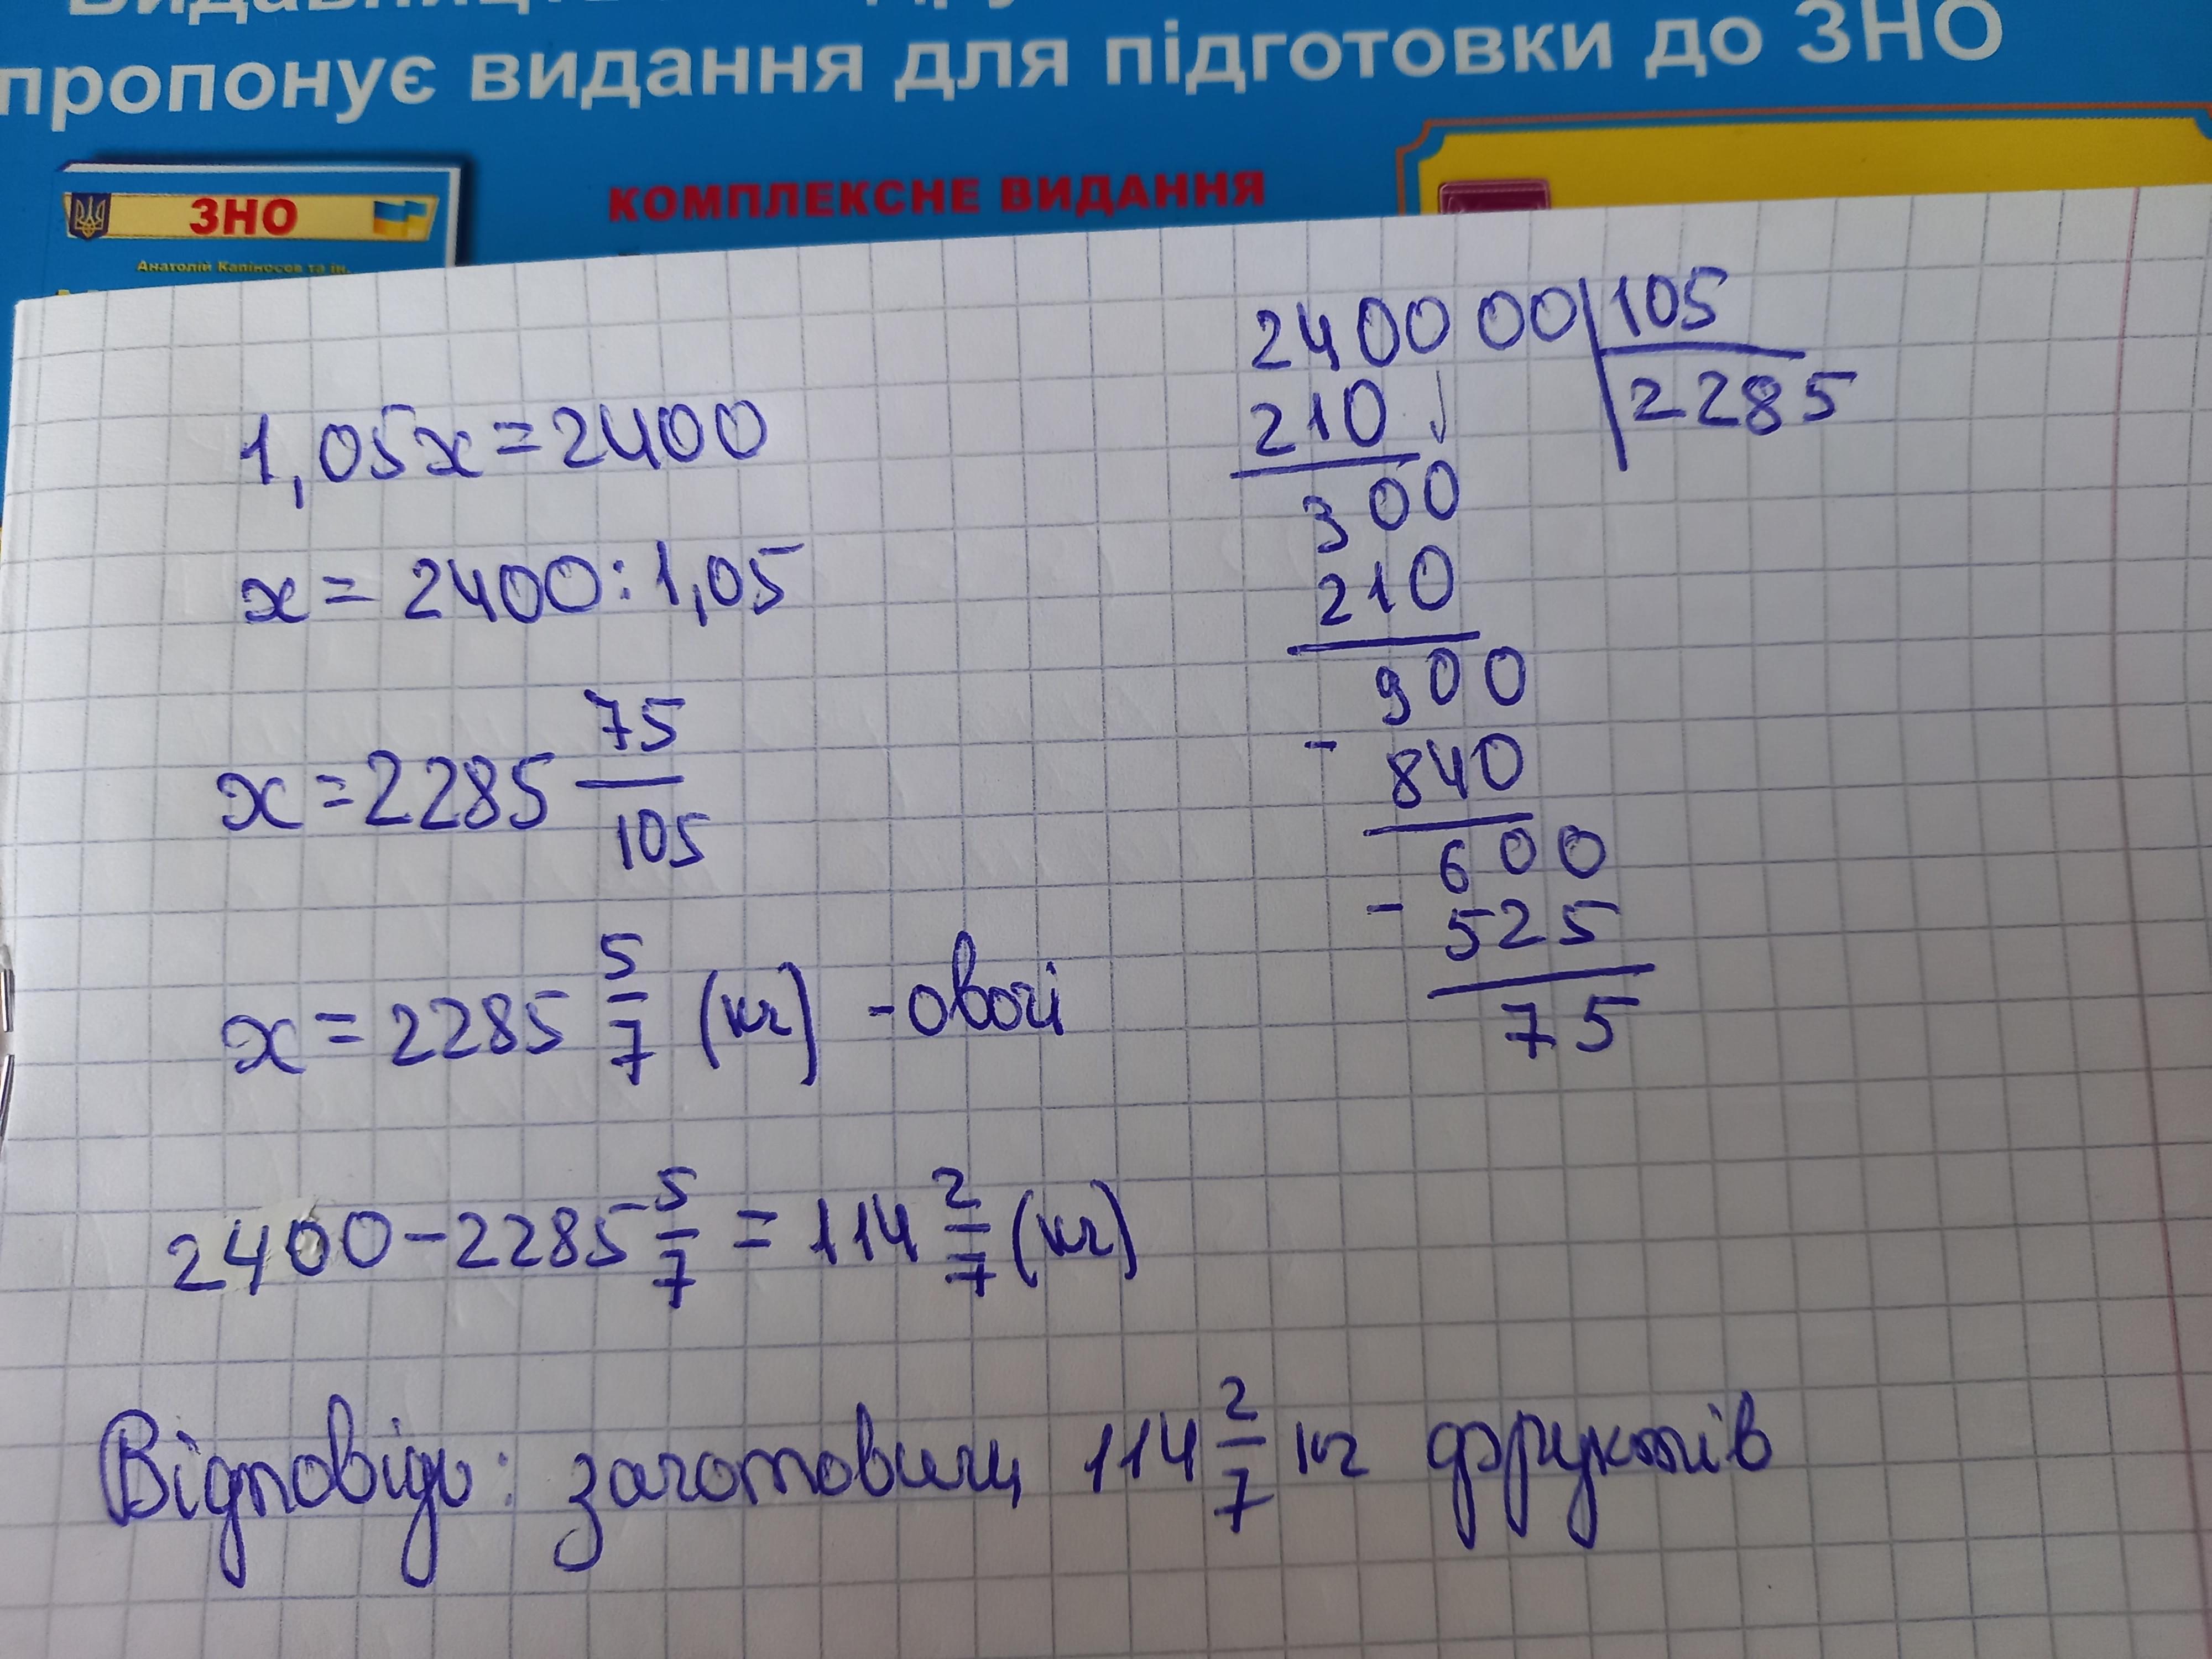 пропонує видання для підготовки до ЗНО
КОМПЛЕКСНЕ ВИДАННЯ
ЗНО
Анатолій Капіносов та ін.
1,05x=2400
x= 2400:1,05
x=2285 75/105
x=2285 5/7 (кг) -овочі
2400-2285 5/7 = 114 2/7 (кг)
Відповідь: заготовили 114 2/7 кг фруктів
240000|105
210
2285
300
210
900
- 840
600
- 525
75